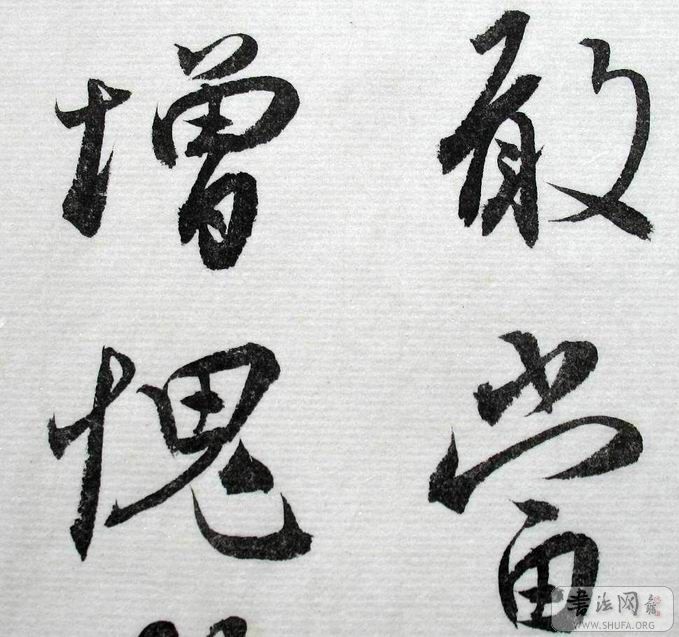 敢當
增愧
書法网
WWW.SHUFA.ORG